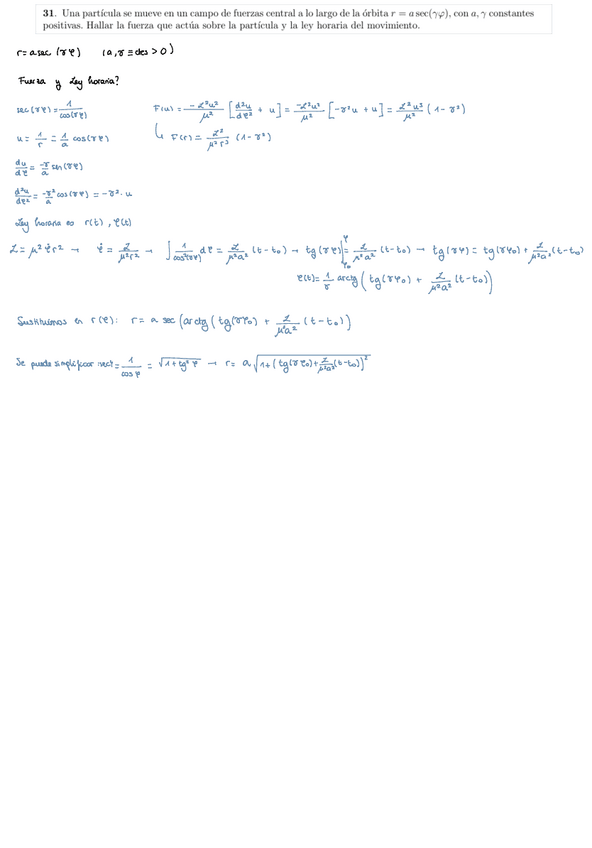 31. Una partícula se mueve en un campo de fuerzas central a lo largo de la órbita r = a sec(γφ), con a, γ constantes
positivas. Hallar la fuerza que actúa sobre la partícula y la ley horaria del movimiento.
r = a sec (γφ) (a, γ ≡ ctes > 0)
Fuerza y Ley horaria?
sec(γφ) = 1/cos(γφ)
u = 1/r = 1/a cos(γφ)
du/dφ = -γ/a sen(γφ)
d²u/dφ² = -γ²/a cos(γφ) = -γ² · u
F(u) = -L²u²/μ² [d²u/dφ² + u] = -L²u²/μ² [-γ²u + u] = L²u³/μ² (1-γ²)
↳ F(r) = L²/μ²r³ (1-γ²)
Ley horaria es r(t), φ(t)
L = μ² φ̇ r² → φ̇ = L/μ²r² → ∫ 1/cos²(γφ) dφ = L/μ²a² (t-t₀) → tg(γφ)|φφ₀ = L/μ²a² (t-t₀) → tg(γφ) = tg(γφ₀) + L/μ²a² (t-t₀)
φ(t) = 1/γ arctg ( tg(γφ₀) + L/μ²a² (t-t₀))
Sustituimos en r(φ): r = a sec (arctg ( tg(γφ₀) + L/μ²a² (t-t₀))
Se puede simplificar = 1/cos φ = √1+tg² φ → r = a √1+(tg(γφ₀)+L/μ²a²(t-t₀))²